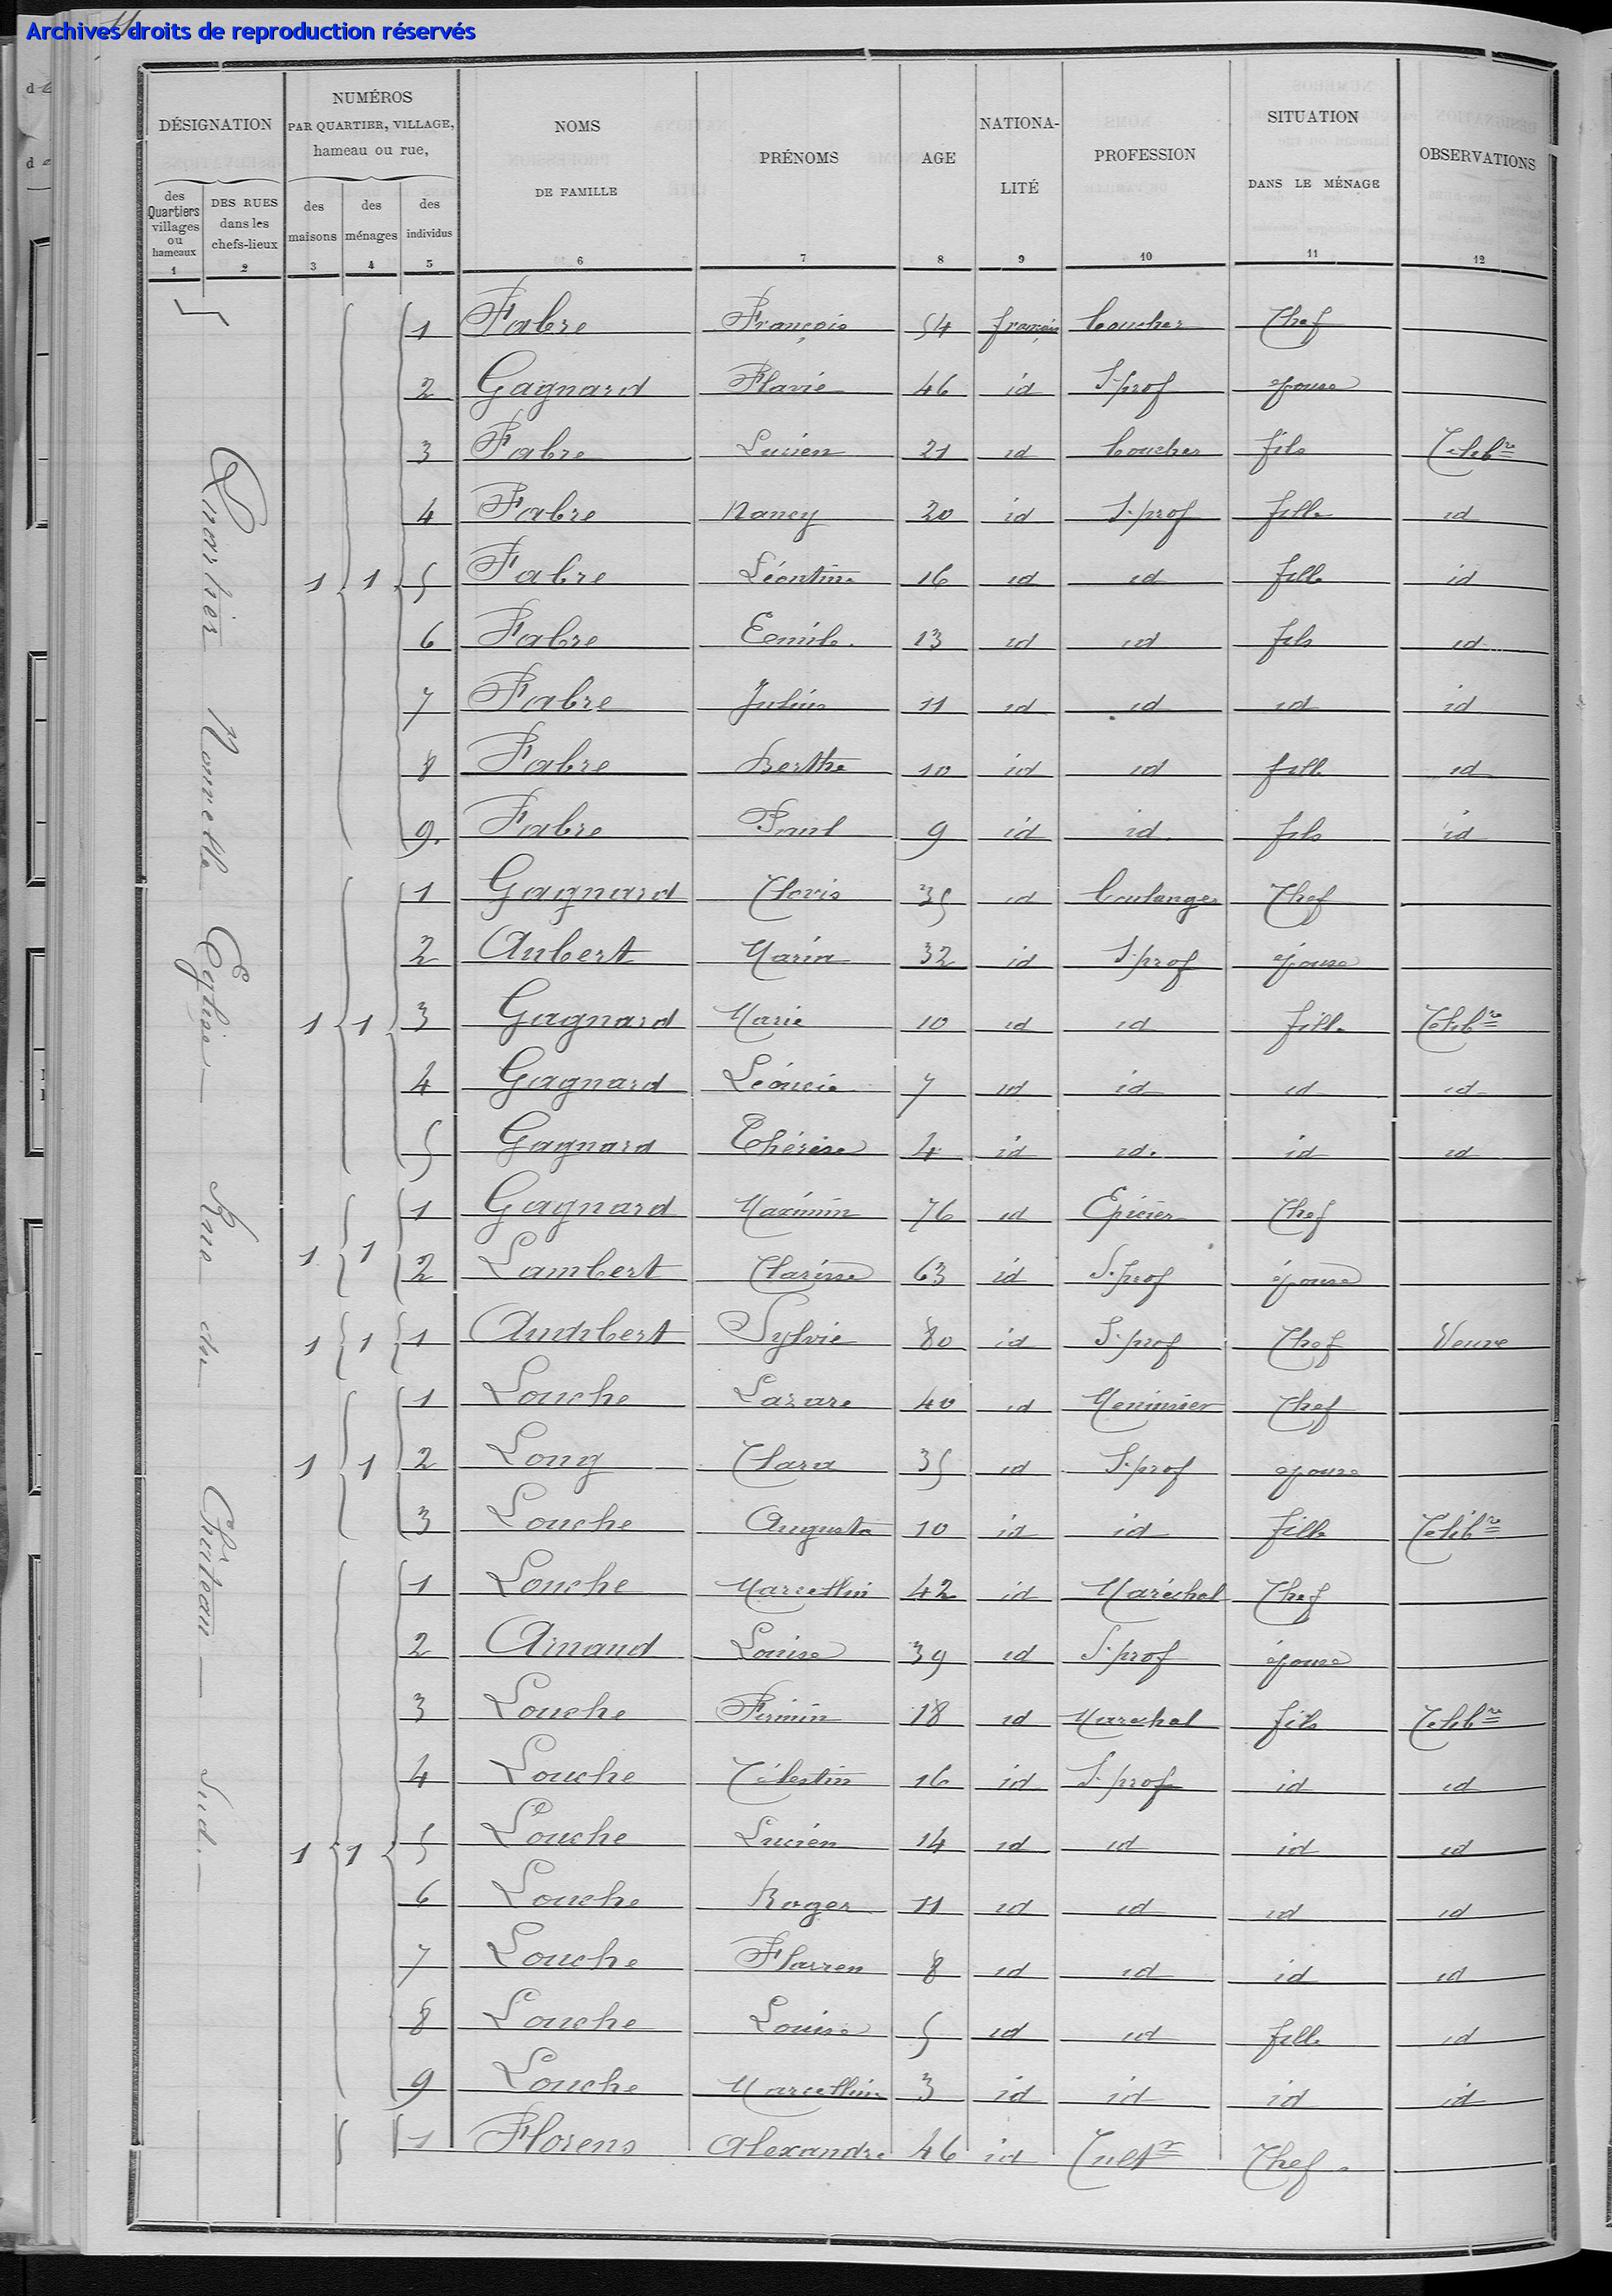 Archives droits de reproduction réservés
DÉSIGNATION
des Quartiers villages ou hameaux
1
DES RUES dans les chefs-lieux
2
NUMÉROS
PAR QUARTIER, VILLAGE,
hameau ou rue,
des maisons
3
des ménages
4
des individus
5
NOMS
DE FAMILLE
6
PRÉNOMS
7
AGE
8
NATIONA-
LITÉ
9
PROFESSION
10
SITUATION
DANS LE MÉNAGE
11
OBSERVATIONS
12
Quartier Nouvelle Eglise — Rue du Château — Sud. —
1 Fabre François 54 français boucher Chef
2 Gagnard Flavie 46 id S. prof épouse
3 Fabre Lucien 21 id boucher fils Célib re
4 Fabre Nancy 20 id S. prof fille id
1 1 5 Fabre Léontine 16 id id fille id
6 Fabre Emile 13 id id fils id
7 Fabre Julien 11 id id id id
8 Fabre Berthe 10 id id fille id
9 Fabre Paul 9 id id fils id
1 Gagnard Clovis 35 id boulanger Chef
2 Aubert Maria 32 id S. prof épouse
1 1 3 Gagnard Marie 10 id id fille Célib re
4 Gagnard Léoncie 7 id id id id
5 Gagnard Thérèse 4 id id. id id
1 Gagnard Maximin 76 id Epicier Chef
1 1 2 Lambert Clarisse 63 id S. prof épouse
1 1 1 Audibert Sylvie 80 id S. prof Chef Veuve
1 Louche Lazare 40 id Menuisier Chef
1 1 2 Long Clara 35 id S. prof épouse
3 Louche Augusta 10 id id fille Célib re
1 Louche Marcellin 42 id Maréchal Chef
2 Arnaud Louise 39 id S. prof épouse
3 Louche Firmin 18 id Marechal fils Célib re
4 Louche Célestin 16 id S. prof id id
1 1 5 Louche Lucien 14 id id id id
6 Louche Roger 11 id id id id
7 Louche 8 id id id id
8 Louche Louise 5 id id fille id
9 Louche Marcelline 3 id id id id
1 Florens Alexandre 46 id Cult r Chef